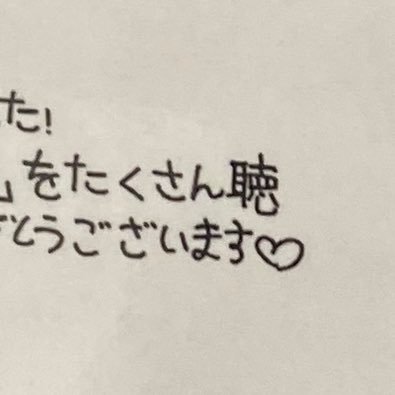 た!
」をたくさん聴
とうございます♡